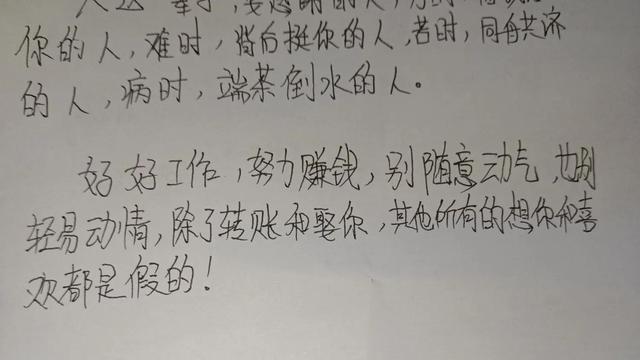 你的人,难时,背后挺你的人,苦时,同舟共济
的人,病时,端茶倒水的人。
好好工作,努力赚钱,别随意动气,也别
轻易动情,除了转账和娶你,其他所有的想你和喜
欢都是假的!